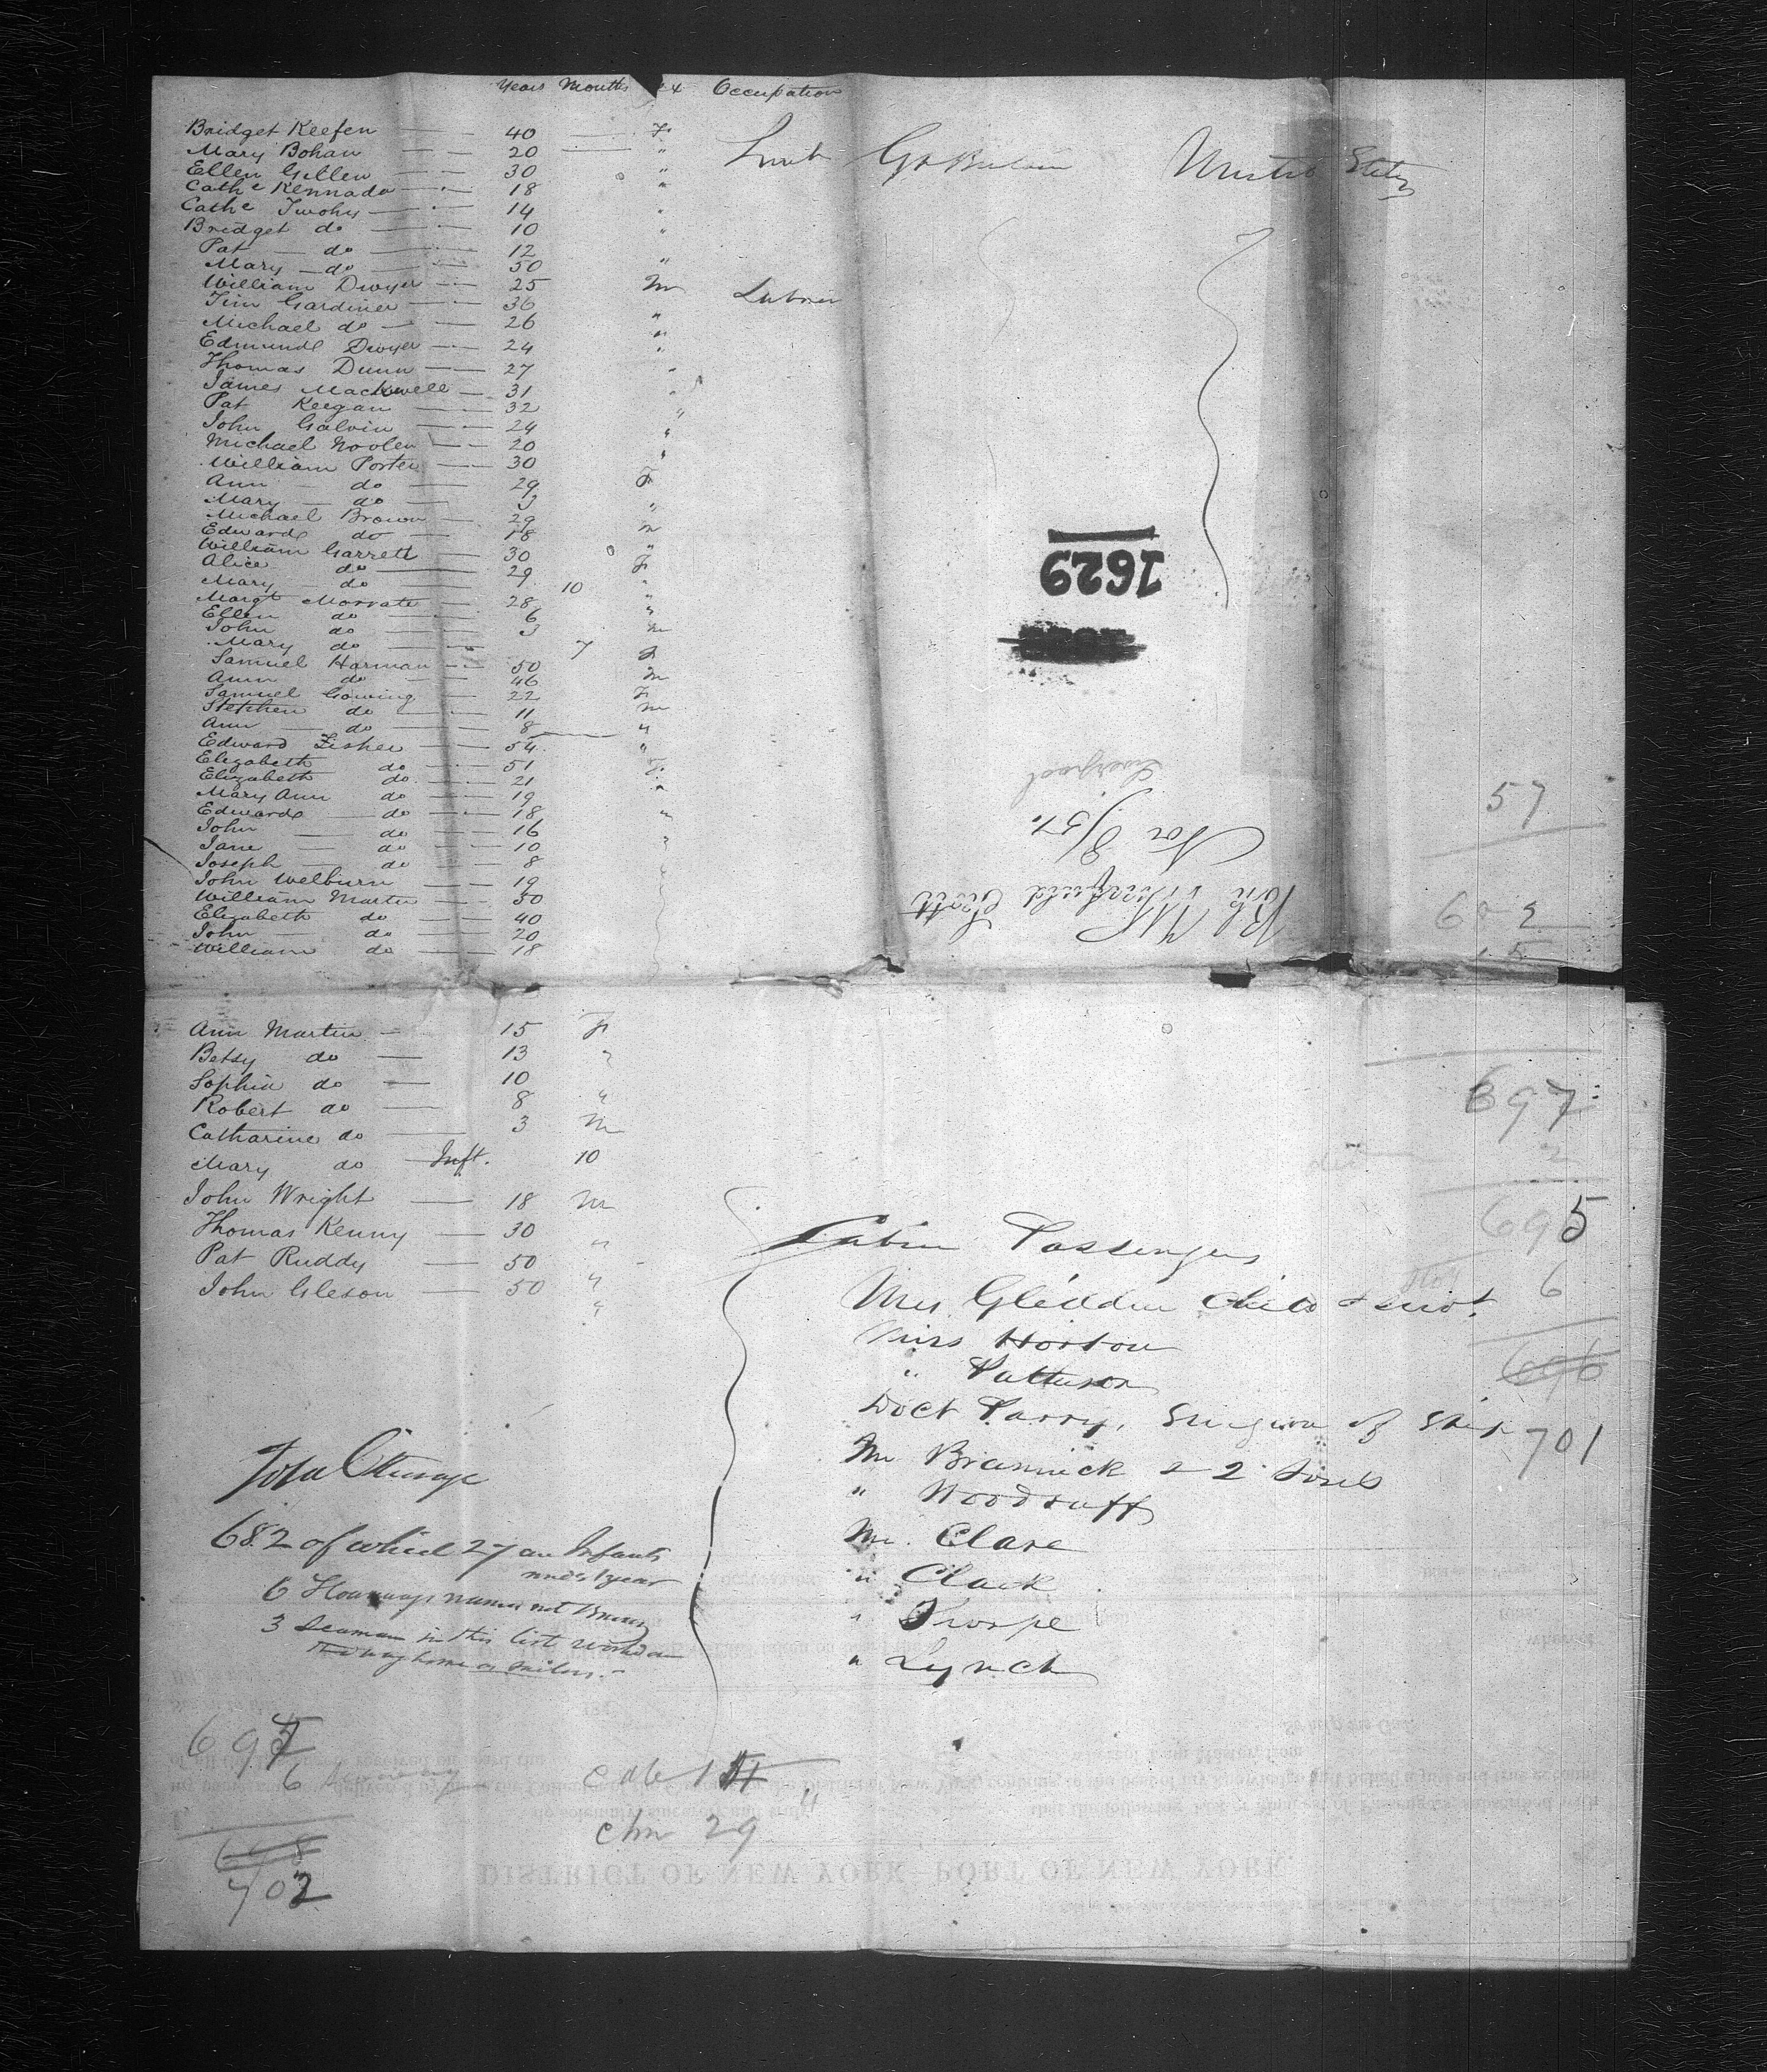 Years Months Sex Occupation
Bridget Keefen 40 F
Mary Bohan 20 "
Ellen Gillen 30 "
Cathe Kennada 18 "
Cathe Twohy 14 "
Bridget do 10 "
Pat do 12
Mary do 50 "
William Dwyer 25 M Labourer
Tim Gardiner 36 "
Michael do 26 "
Edmund Dwyer 24 "
Thomas Dunn 27 "
James Mackwell 31 "
Pat Keegan 32 "
John Galvin 24 "
Michael Noolen 20 "
William Porter 30
Ann do 29 F
Mary do 3 "
Michael Brown 29 M
Edward do 18 "
William Garrett 30
Alice do 29 F
Mary do 10 "
Margt Morrate 28 "
Ellen do 6
John do 3 M
Mary do 7 F
Samuel Harman 50 M
Ann do 46 F
Samuel Gowing 22 M
Stephen do 11 "
Ann do 8 "
Edward Fisher 54
Elizabeth do 51 F
Elizabeth do 21 "
Mary Ann do 19
Edward do 18 "
John do 16
Jane do 10
Joseph do 8
John Welburn 19
William Martin 50
Elizabeth do 40
John do 20
William do 18
Gt Britain United States
1629
Liverpool
Nov 8/51.
Winfield Scott
57
602
Ann Martin 15 F
Betsy do 13 "
Sophia do 10
Robert do 8 "
Catharine do 3 M
Mary do Inft. 10
John Wright 18 M
Thomas Kenny 30
Pat Ruddy 50 "
John Gleson 50 "
697
2
695
6
696
701
Cabin Passengers
Mrs Glidden Child & Servt.
Miss Horton
" Patterson
Doct Parry, Surgeon of Ship
Mr Brannick & 2
" Woodruff
Mr. Clare
" Clark
" Thorpe
" Lynch
Total Steerage
682 of which 27 are Infants
under 1 year
6 Stowaways names not known
3 Seaman in this list worked
the way home as sailors.
697
6
698
702
chn 29
DISTRICT OF NEW YORK PORT OF NEW YORK.